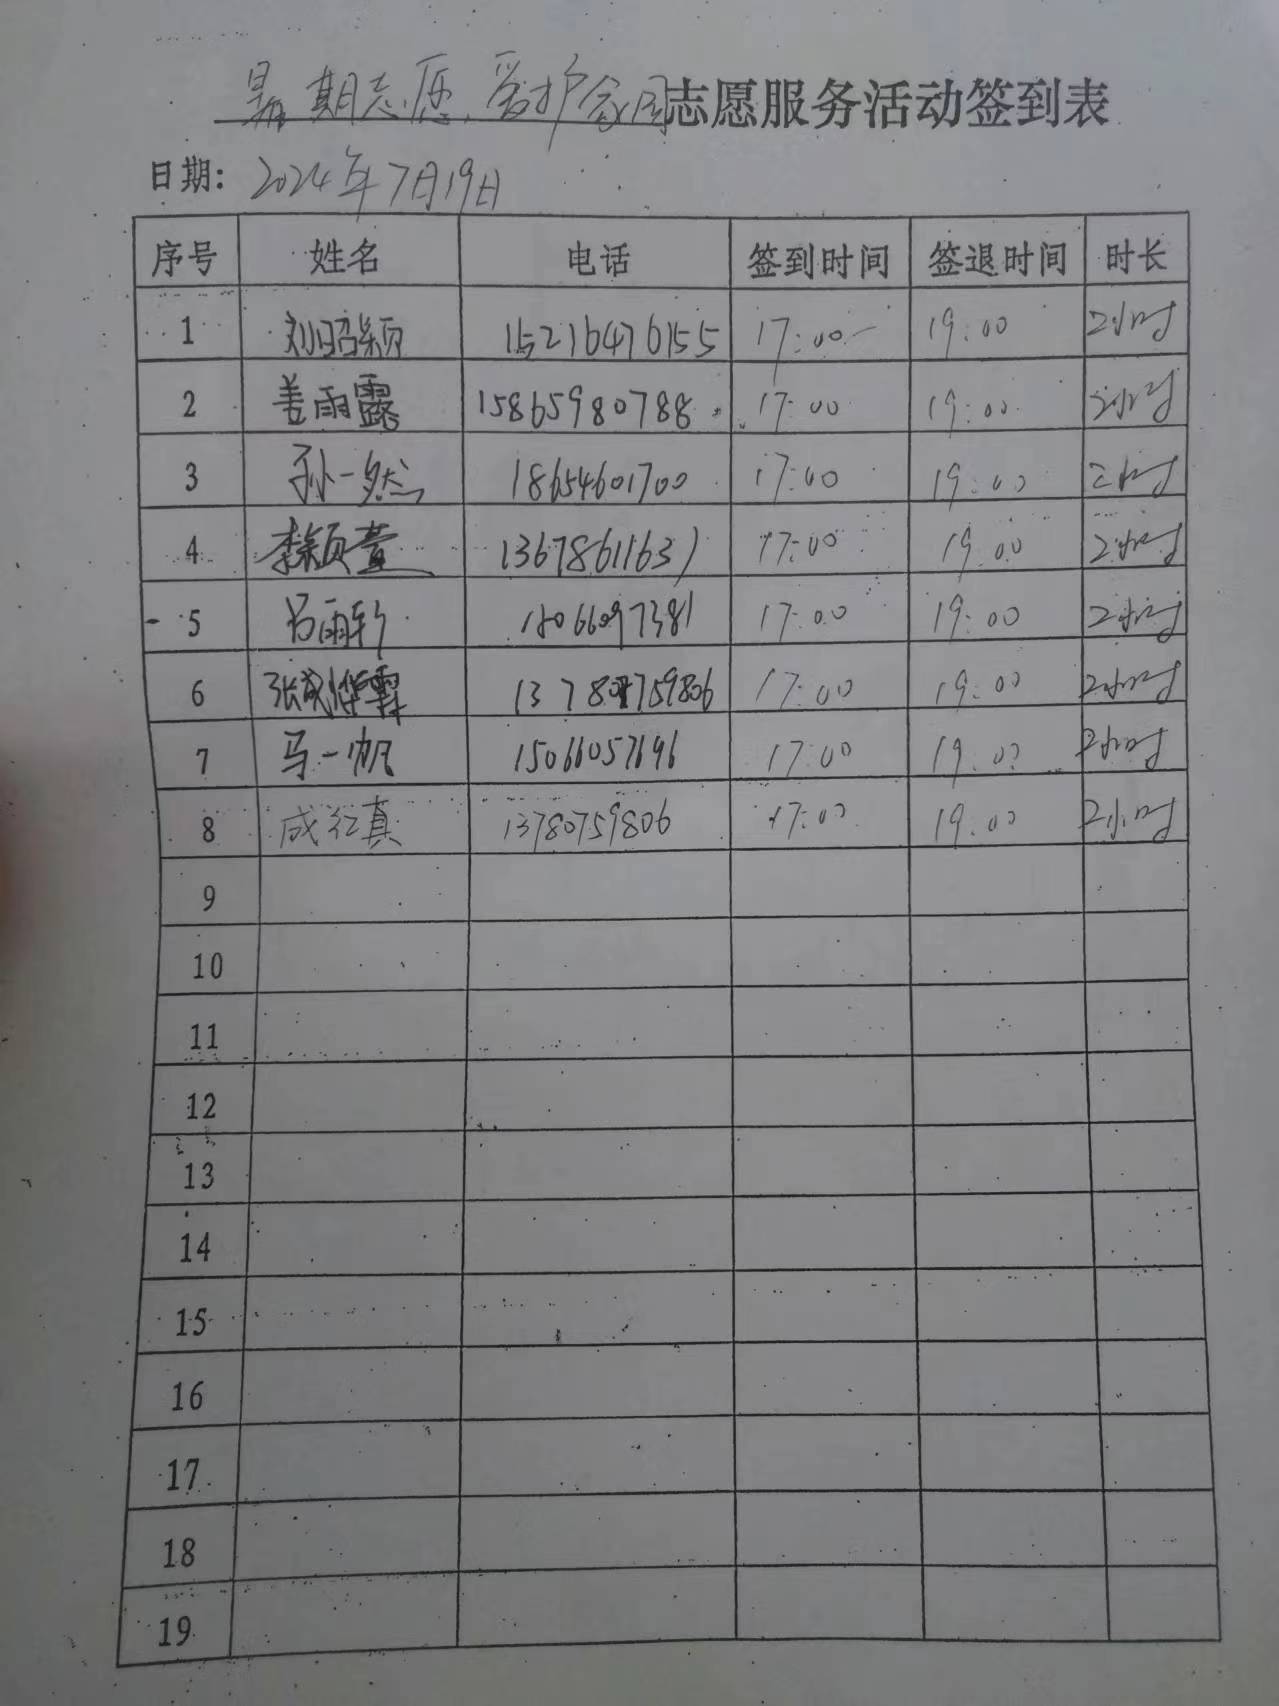 暑期志愿,爱护家园志愿服务活动签到表
日期: 2024年7月19日
序号 姓名 电话 签到时间 签退时间 时长
1 刘昭颖 15216476155 17:00 19:00 2小时
2 姜雨露 15865980788 17:00 19:00 2小时
3 孙一然 18654601700 17:00 19:00 2小时
4 李颖萱 13678611631 17:00 19:00 2小时
5 吕雨轩 17:00 19:00 2小时
6 17:00 19:00 2小时
7 马一帆 15066057696 17:00 19:00 2小时
8 成红真 13780759806 17:00 19:00 2小时
9
10
11
12
13
14
15
16
17
18
19